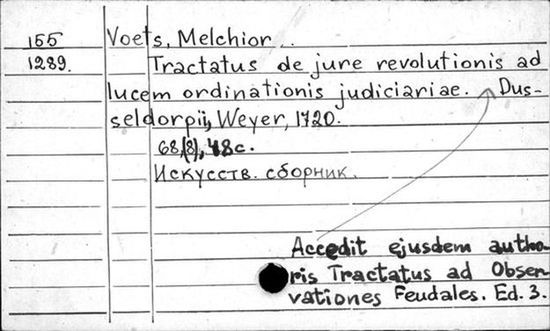 155
1289.
Voets, Melchior.
Tractatus de jure revolutionis ad
lucem ordinationis judiciariae. Dus-
seldorpii, Weyer, 1720.
68,(8), 48 с.
Искусств. сборник.
Accedit ejusdem autho-
ris Tractatus ad Obser-
vationes Feudales. Ed. 3.